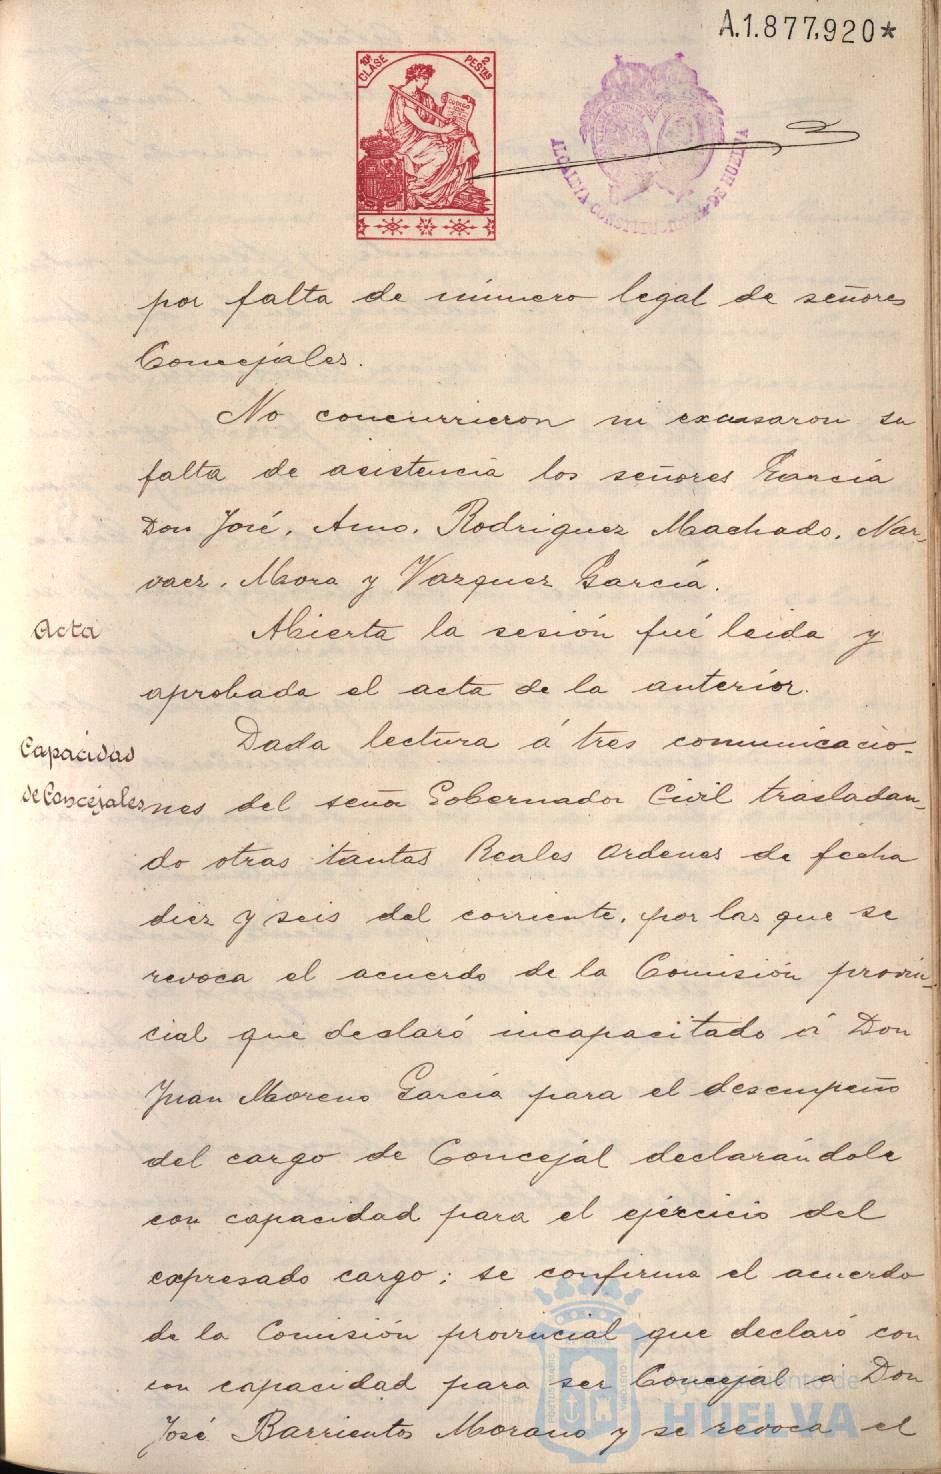 A.1.877,920*
10ª CLASE 2 PESTAS
ALCALDIA CONSTITUCIONAL DE HUELVA
por falta de número legal de señores
Concejales.
No concurrieron ni excusaron su
falta de asistencia los señores García
Don José, Amo, Rodriguez Machado, Nar-
vaez, Mora y Vazquez García.
Acta
Abierta la sesión fué leida y
aprobada el acta de la anterior.
Capacidad
de Concejales
Dada lectura á tres comunicacio-
nes del señor Gobernador Civil trasladan-
do otras tantas Reales Ordenes de fecha
diez y seis del corriente, por las que se
revoca el acuerdo de la Comisión provin-
cial que declaró incapacitado á Don
Juan Moreno García para el desempeño
del cargo de Concejal declarándole
con capacidad para el ejercicio del
expresado cargo; se confirma el acuerdo
de la Comisión provincial que declaró con
con capacidad para ser Concejal á Don
José Barrientos Morano y se revoca el
Ayuntamiento de
HUELVA